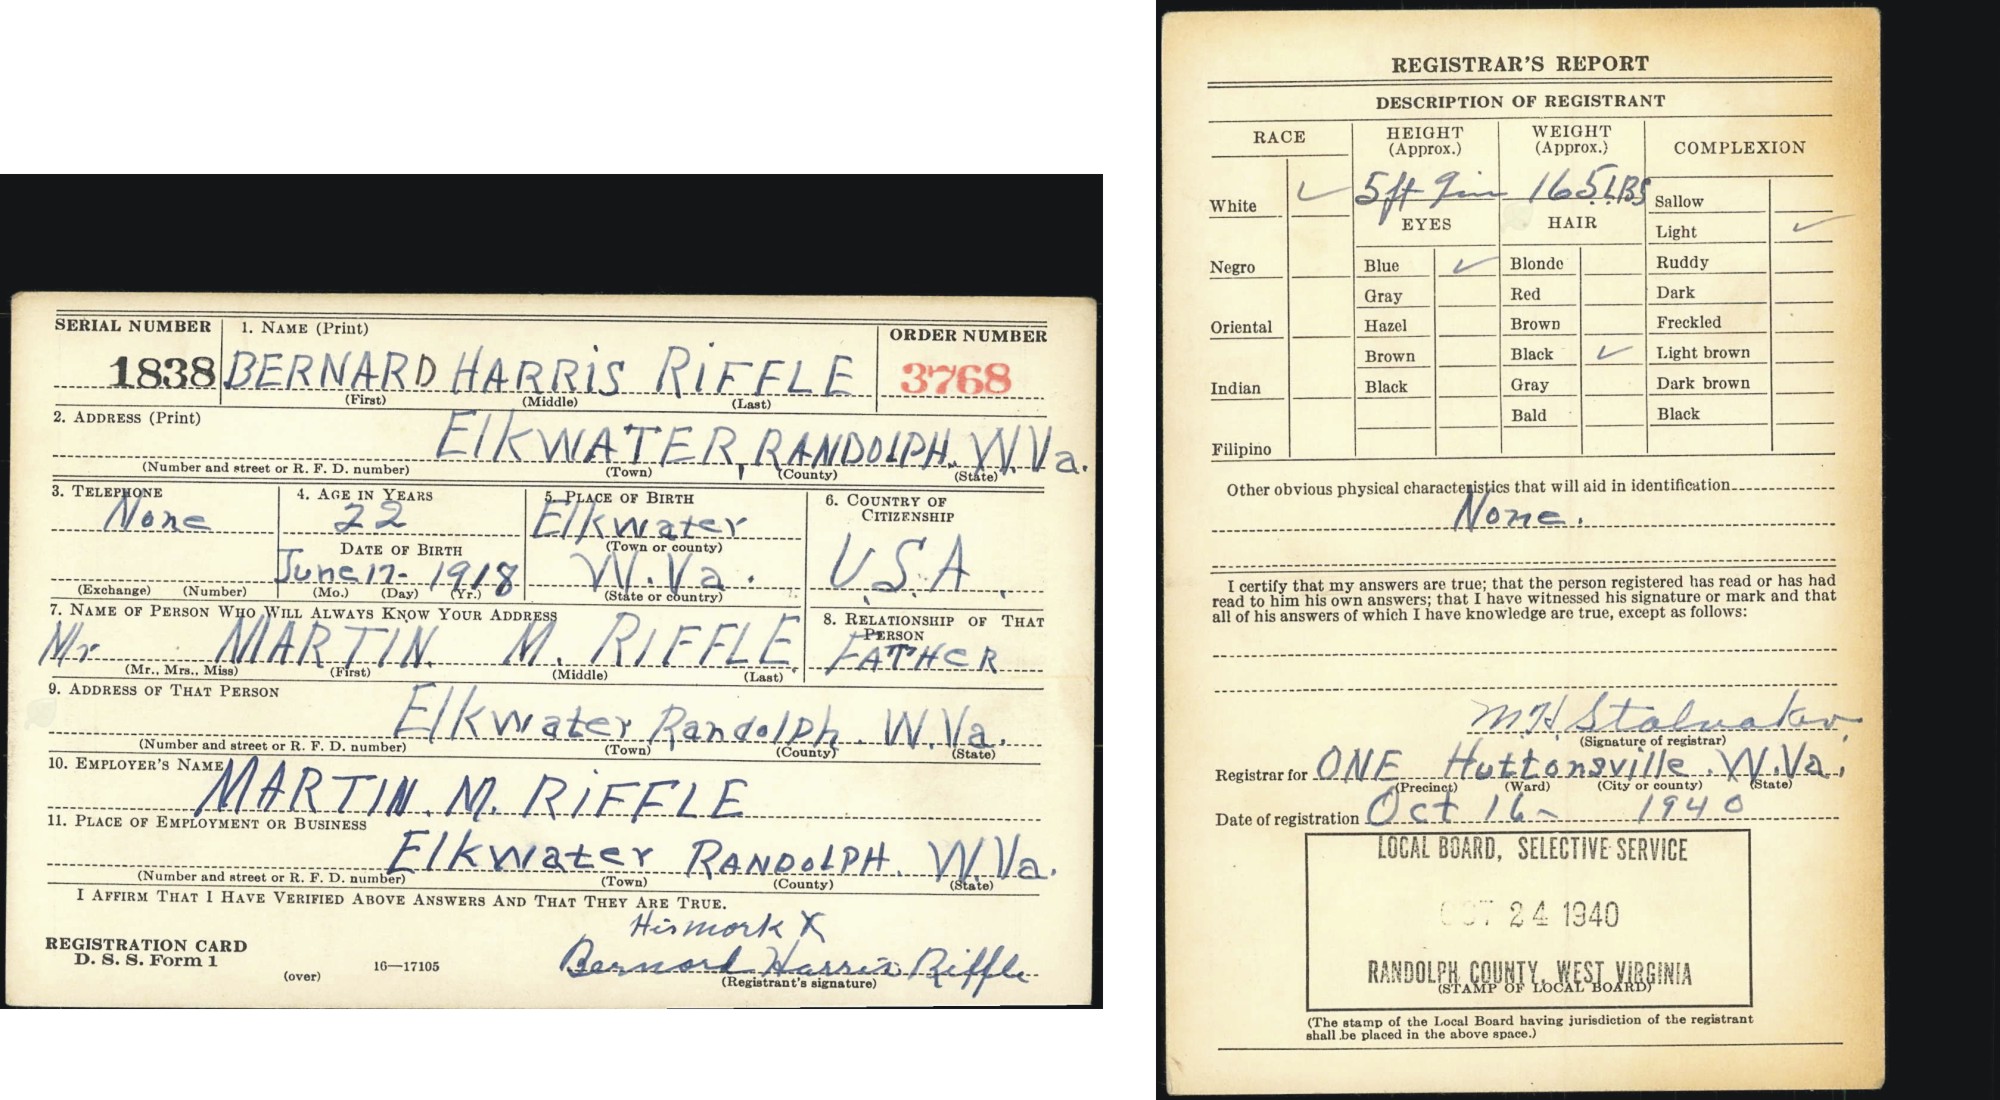 SERIAL NUMBER
1. NAME (Print)
ORDER NUMBER
1838
BERNARD HARRIS RIFFLE
3768
(First) (Middle) (Last)
2. ADDRESS (Print)
ElKWATER, RANDOLPH. W.Va.
(Number and street or R. F. D. number) (Town) (County) (State)
3. TELEPHONE
None
(Exchange) (Number)
4. AGE IN YEARS
22
DATE OF BIRTH
June 17- 1918
(Mo.) (Day) (Yr.)
5. PLACE OF BIRTH
Elkwater
(Town or county)
W.Va.
(State or country)
6. COUNTRY OF
CITIZENSHIP
U.S.A.
7. NAME OF PERSON WHO WILL ALWAYS KNOW YOUR ADDRESS
Mr. MARTIN M. RIFFLE
(Mr., Mrs., Miss) (First) (Middle) (Last)
8. RELATIONSHIP OF THAT
PERSON
FATHER
9. ADDRESS OF THAT PERSON
Elkwater Randolph. W.Va.
(Number and street or R. F. D. number) (Town) (County) (State)
10. EMPLOYER'S NAME
MARTIN. M. RIFFLE
11. PLACE OF EMPLOYMENT OR BUSINESS
Elkwater RANDOLPH. W.Va.
(Number and street or R. F. D. number) (Town) (County) (State)
I AFFIRM THAT I HAVE VERIFIED ABOVE ANSWERS AND THAT THEY ARE TRUE.
His mark X
REGISTRATION CARD
D. S. S. Form 1
(over)
16—17105
Bernard Harris Riffle
(Registrant's signature)
REGISTRAR'S REPORT
DESCRIPTION OF REGISTRANT
RACE
HEIGHT
(Approx.)
WEIGHT
(Approx.)
COMPLEXION
White ✓
5 ft 9 in
165 LBS
Sallow
EYES
HAIR
Light ✓
Negro
Blue ✓
Blonde
Ruddy
Gray
Red
Dark
Oriental
Hazel
Brown
Freckled
Brown
Black ✓
Light brown
Indian
Black
Gray
Dark brown
Bald
Black
Filipino
Other obvious physical characteristics that will aid in identification
None.
I certify that my answers are true; that the person registered has read or has had
read to him his own answers; that I have witnessed his signature or mark and that
all of his answers of which I have knowledge are true, except as follows:
M.H. Stalnaker
(Signature of registrar)
Registrar for ONE Huttonsville. W.Va.
(Precinct) (Ward) (City or county) (State)
Date of registration Oct 16- 1940
LOCAL BOARD, SELECTIVE SERVICE
OCT 24 1940
RANDOLPH COUNTY, WEST VIRGINIA
(STAMP OF LOCAL BOARD)
(The stamp of the Local Board having jurisdiction of the registrant
shall be placed in the above space.)